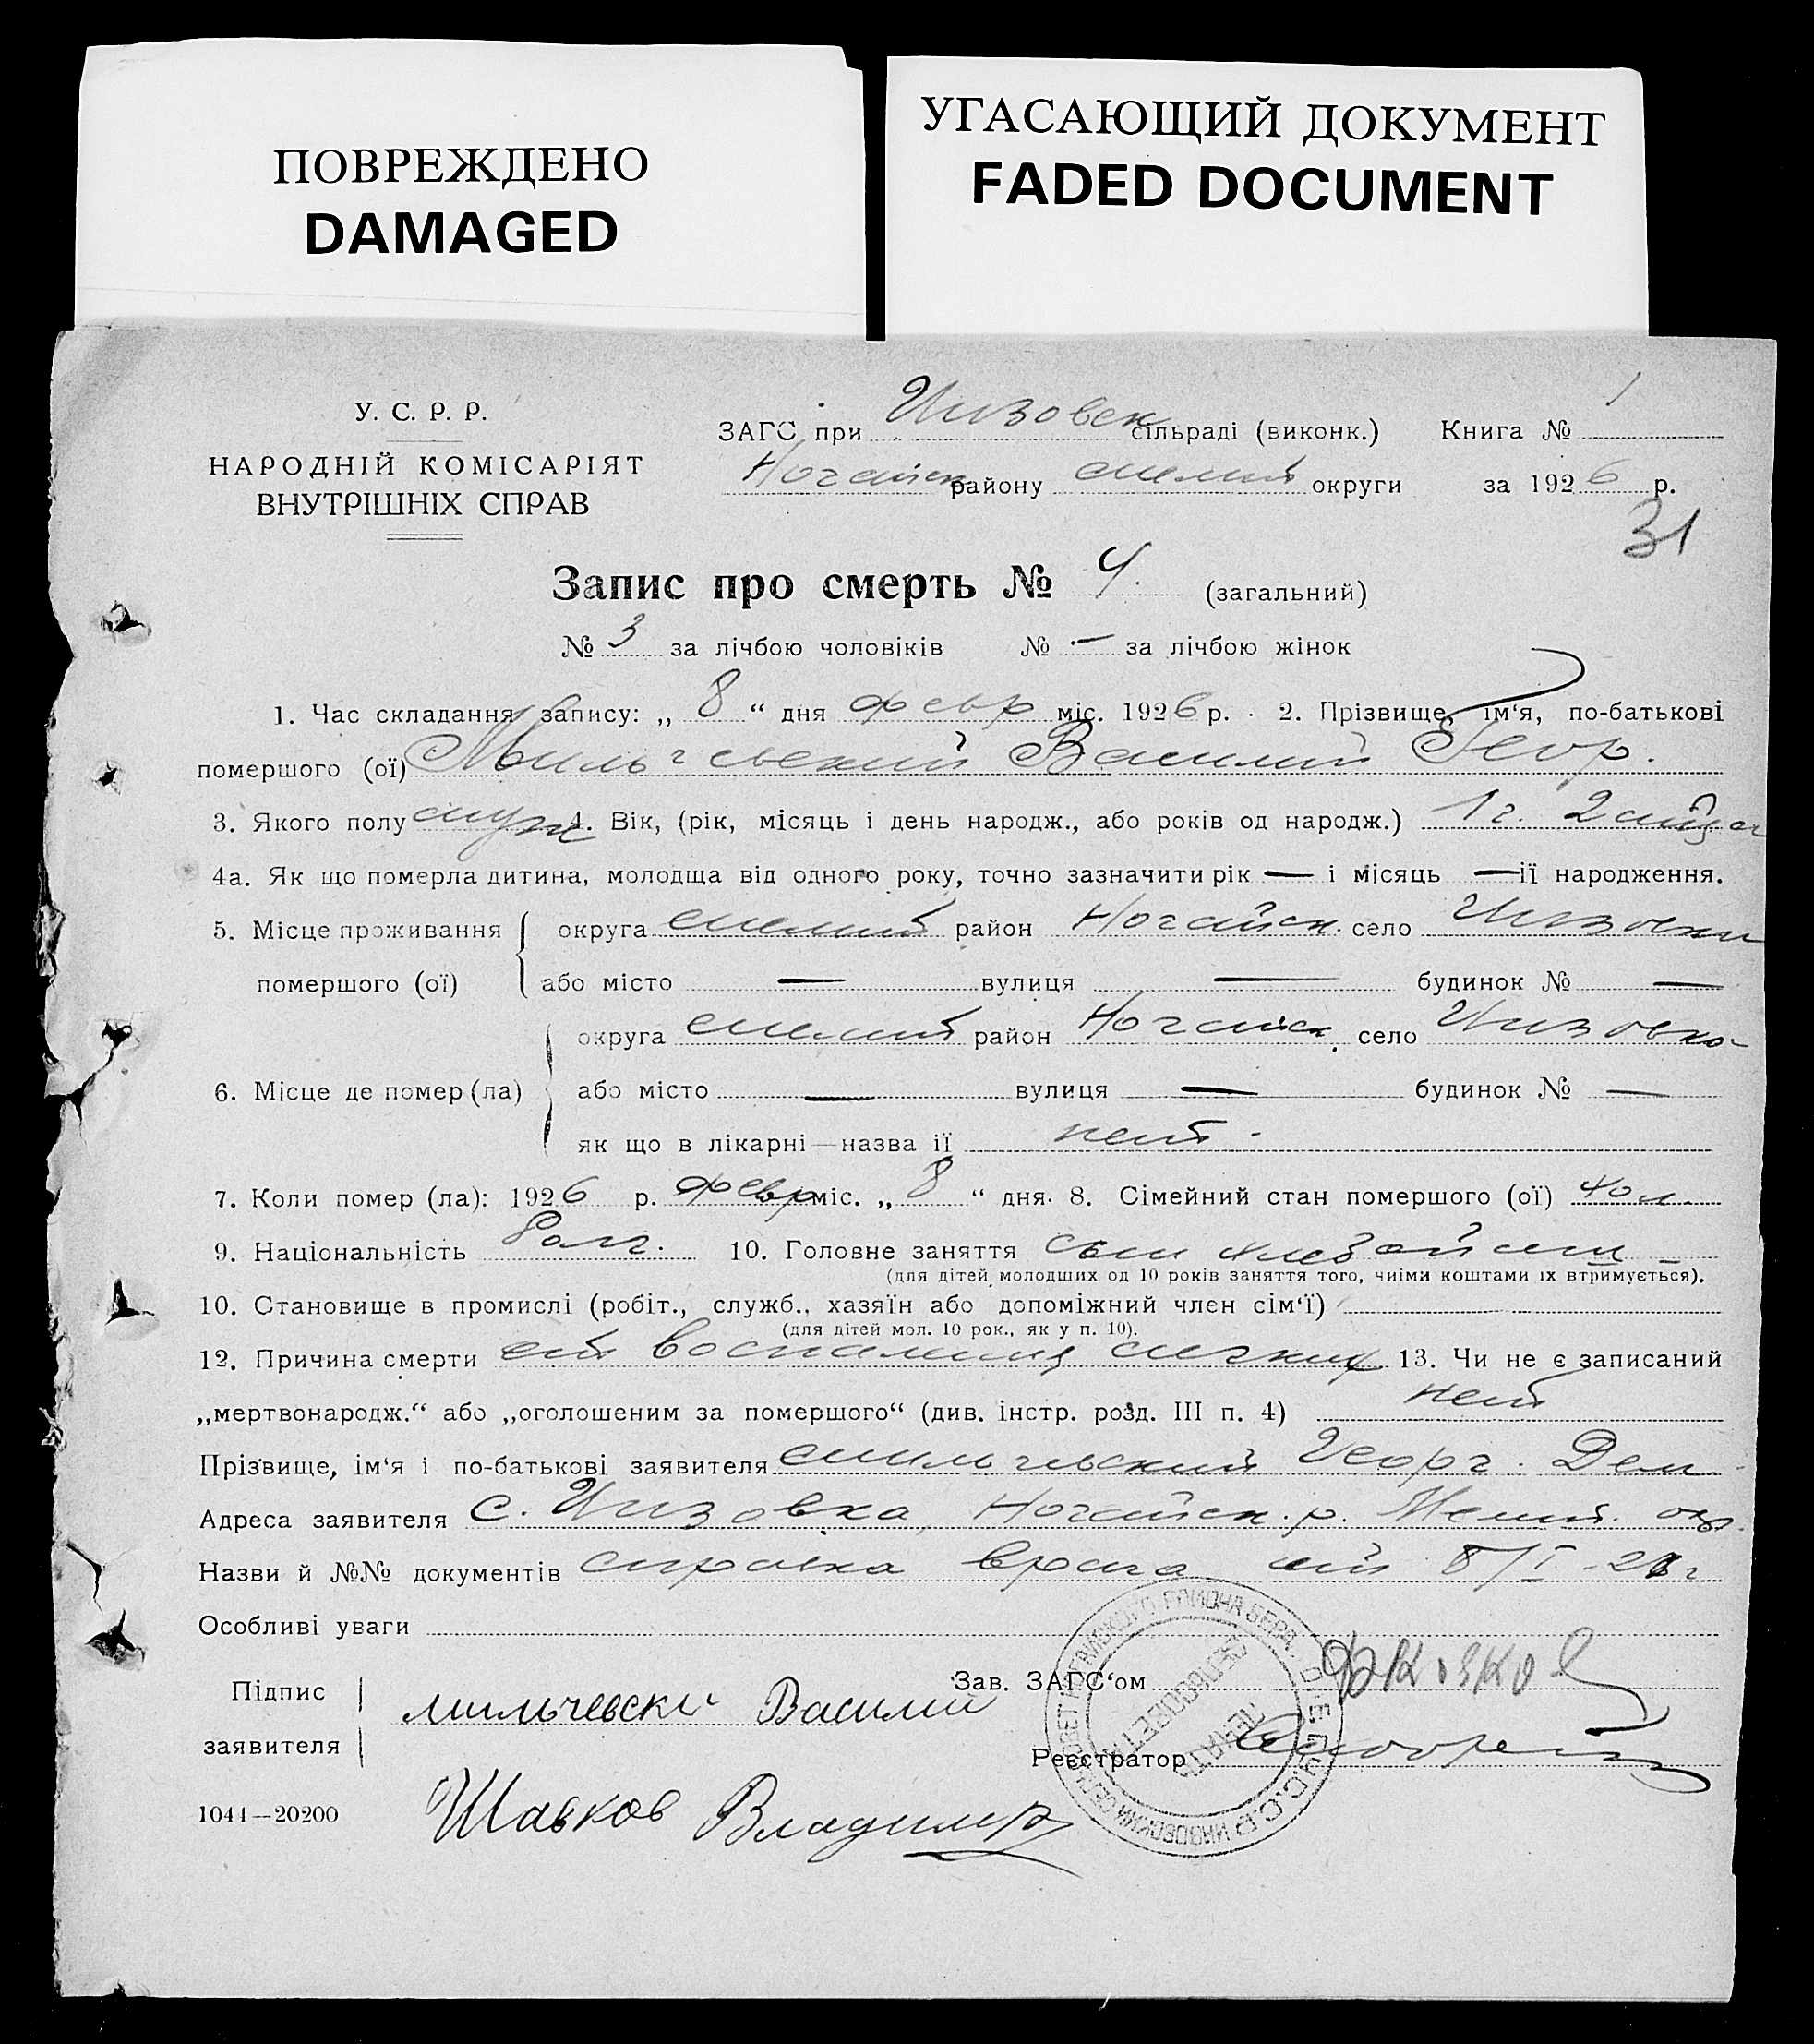 ПОВРЕЖДЕНО
DAMAGED
УГАСАЮЩИЙ ДОКУМЕНТ
FADED DOCUMENT
У. С. Р. Р.
НАРОДНІЙ КОМІСАРІЯТ
ВНУТРІШНІХ СПРАВ
ЗАГС при Инзовск сільраді (виконк.) Книга № 1
Ногайск району мелит округи за 1926 р.
31
Запис про смерть № 4. (загальний)
№ 3 за лічбою чоловіків № — за лічбою жінок
1. Час складання запису: „ 8 “ дня февр міс. 1926 р. · 2. Прізвище, ім‘я, по-батькові
помершого (ої) Мильчевский Василий Геор.
3. Якого полу муж 4. Вік, (рік, місяць і день народж., або років од народж.) 1 г. 2 месяца
4а. Як що померла дитина, молодща від одного року, точно зазначити рік — і місяць — її народження.
5. Місце проживання округа мелит район Ногайск. село Инзовки
помершого (ої) або місто — вулиця — будинок № —
округа мелит район Ногайск село Инзовка
6. Місце де помер (ла) або місто — вулиця — будинок № —
як що в лікарні—назва її нет.
7. Коли помер (ла): 1926 р. февр міс. „ 8 “ дня. 8. Сімейний стан помершого (ої) хол.
9. Національність Болг. 10. Головне заняття сын
(для дітей молодших од 10 років заняття того, чиїми коштами їх втримується).
10. Становище в промислі (робіт., служб., хазяїн або допоміжний член сім‘ї)
(для дітей мол. 10 рок., як у п. 10).
12. Причина смерти от воспаления легких 13. Чи не є записаний
„мертвонародж.“ або „оголошеним за помершого“ (див. інстр. розд. III п. 4) нет
Прізвище, ім‘я і по-батькові заявителя мильчевский Георг. Дем
Адреса заявителя с. Инзовка, Ногайск. р. Мелит. окр.
Назви й №№ документів справка врача от 8/I-26 г
Особливі уваги
Підпис
заявителя
мильчевски Василий
Зав. ЗАГС‘ом
Реєстратор
1044—20200
Шавков Владимир